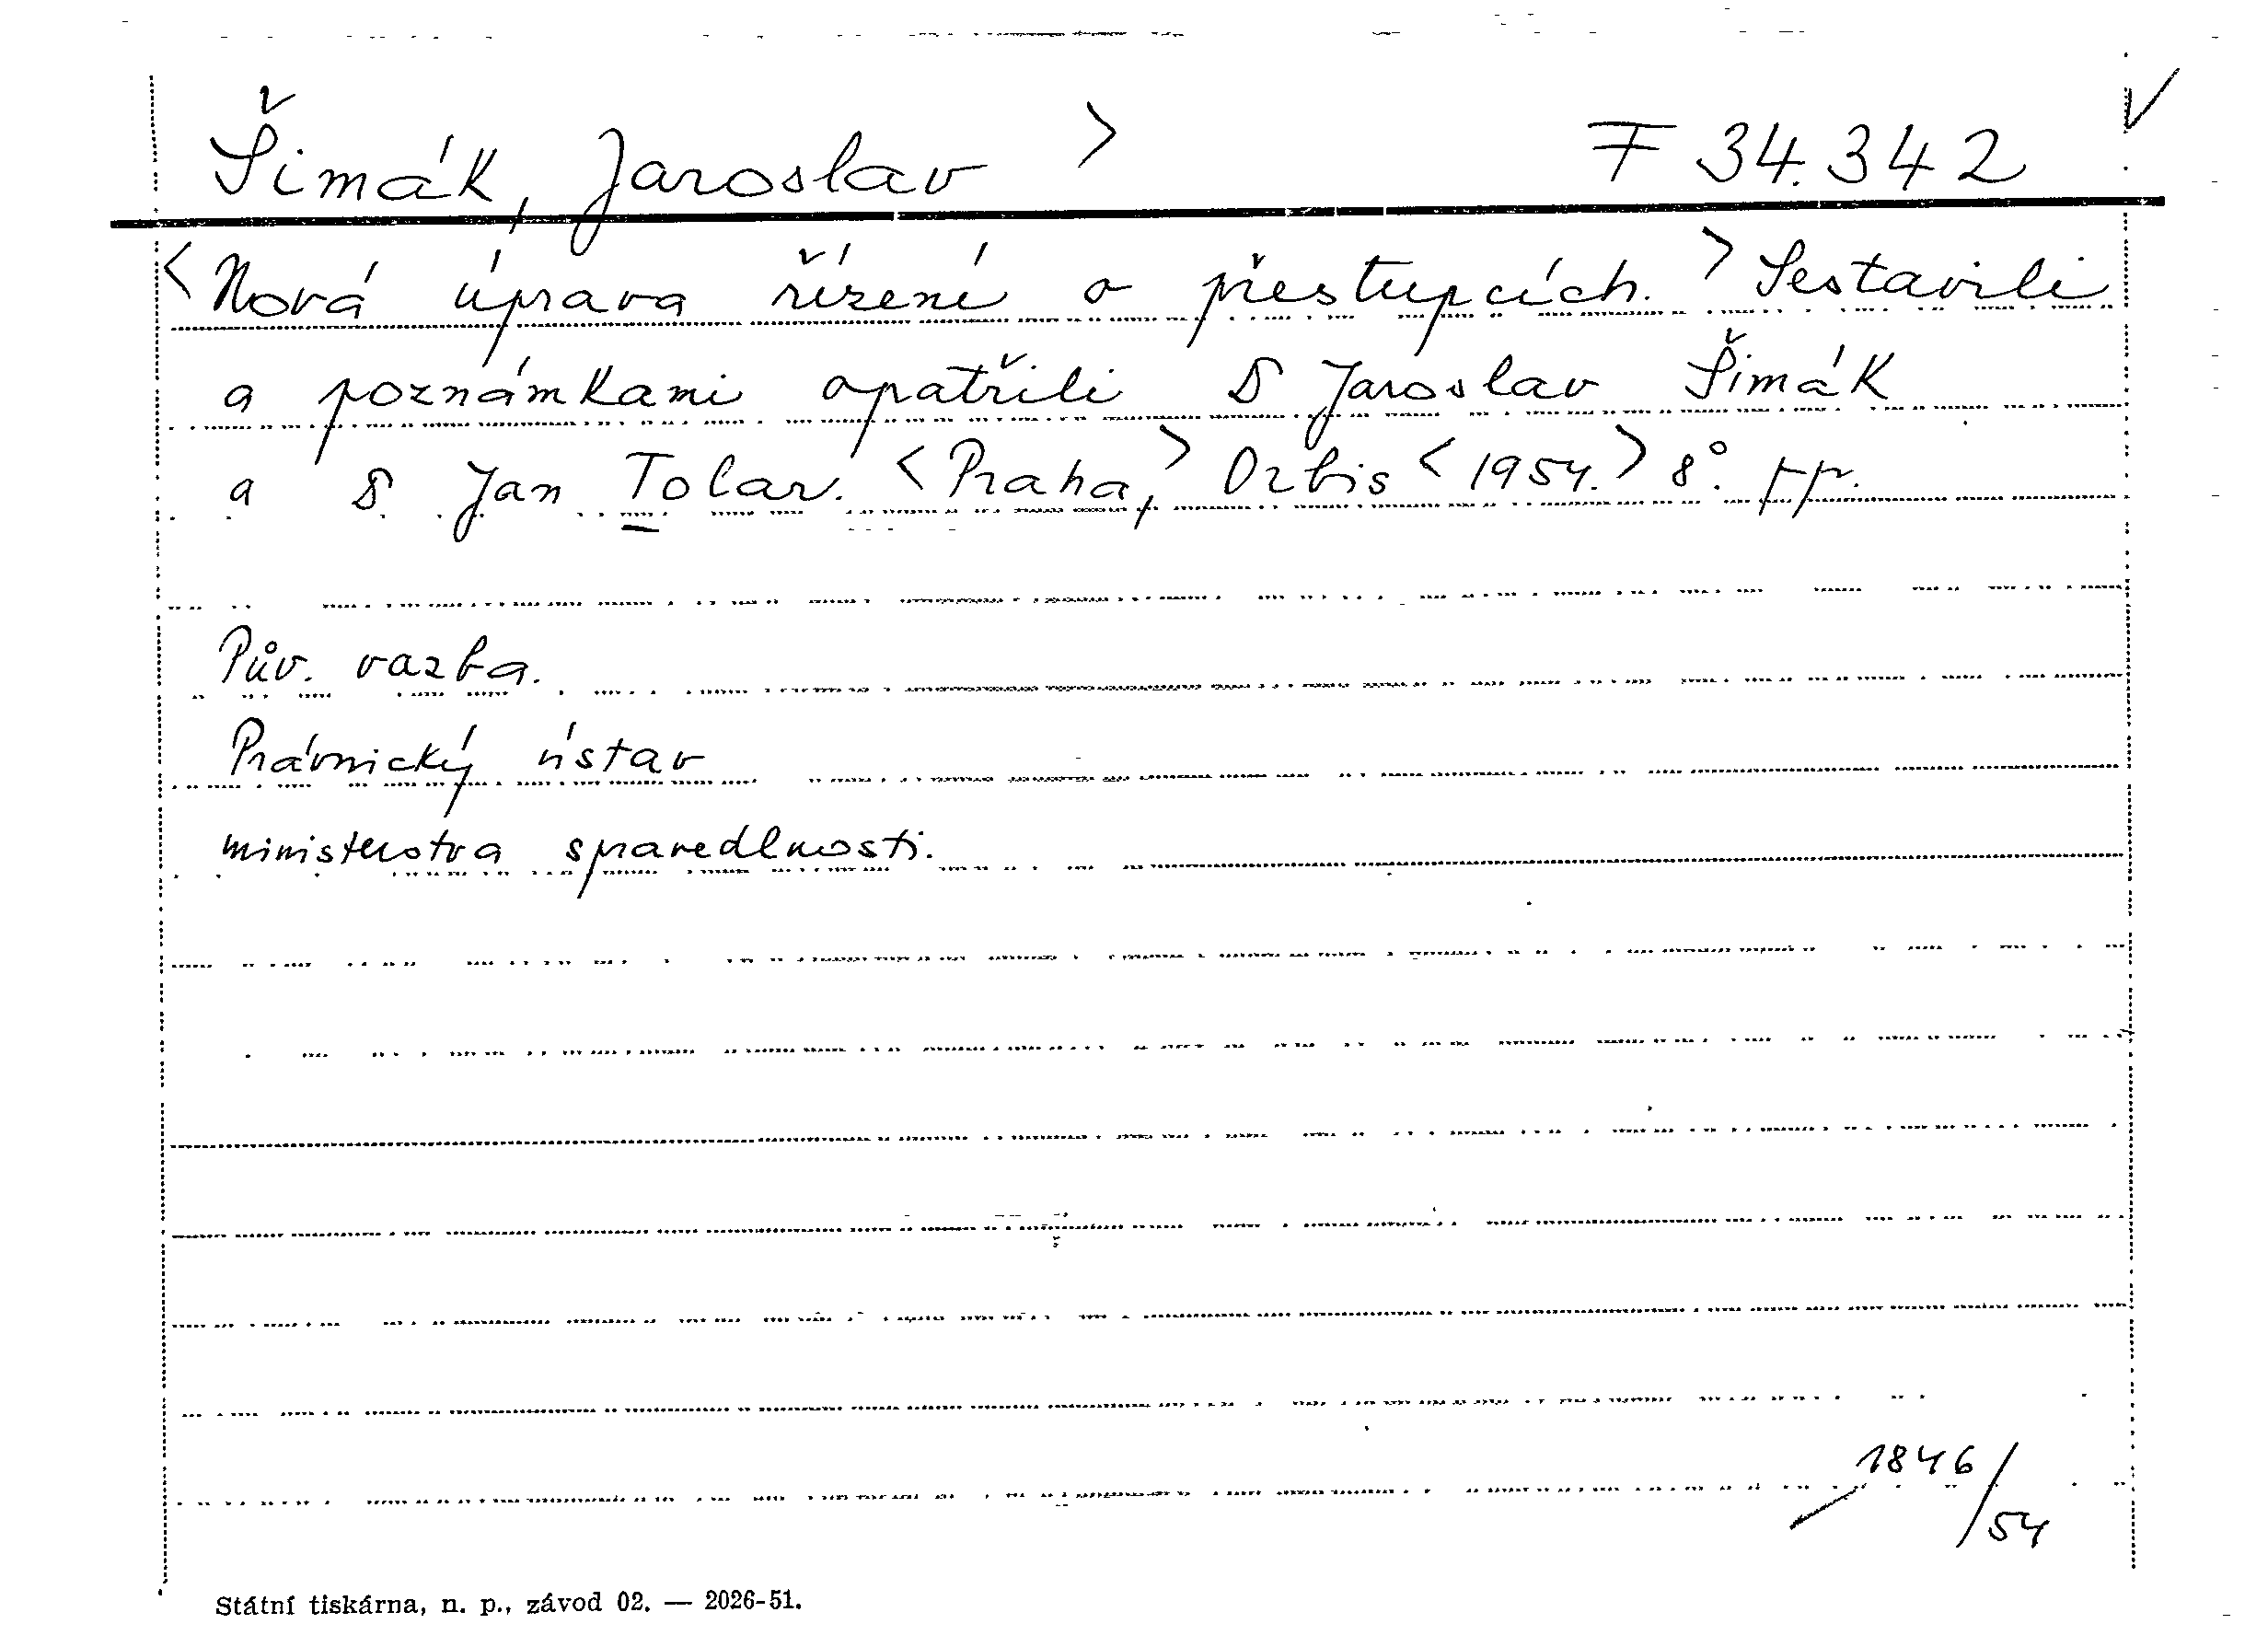 Šimák, Jaroslav > F 34.342
<Nová úprava řízení o přestupcích.> Sestavili
a poznámkami opatřili D Jaroslav Šimák
a D Jan Tolar. <Praha,> Orbis <1954.> 8°. pp.
Pův. vazba.
Právnický ústav
ministerstva spravedlnosti.
1846/54
Státní tiskárna, n. p., závod 02. — 2026-51.